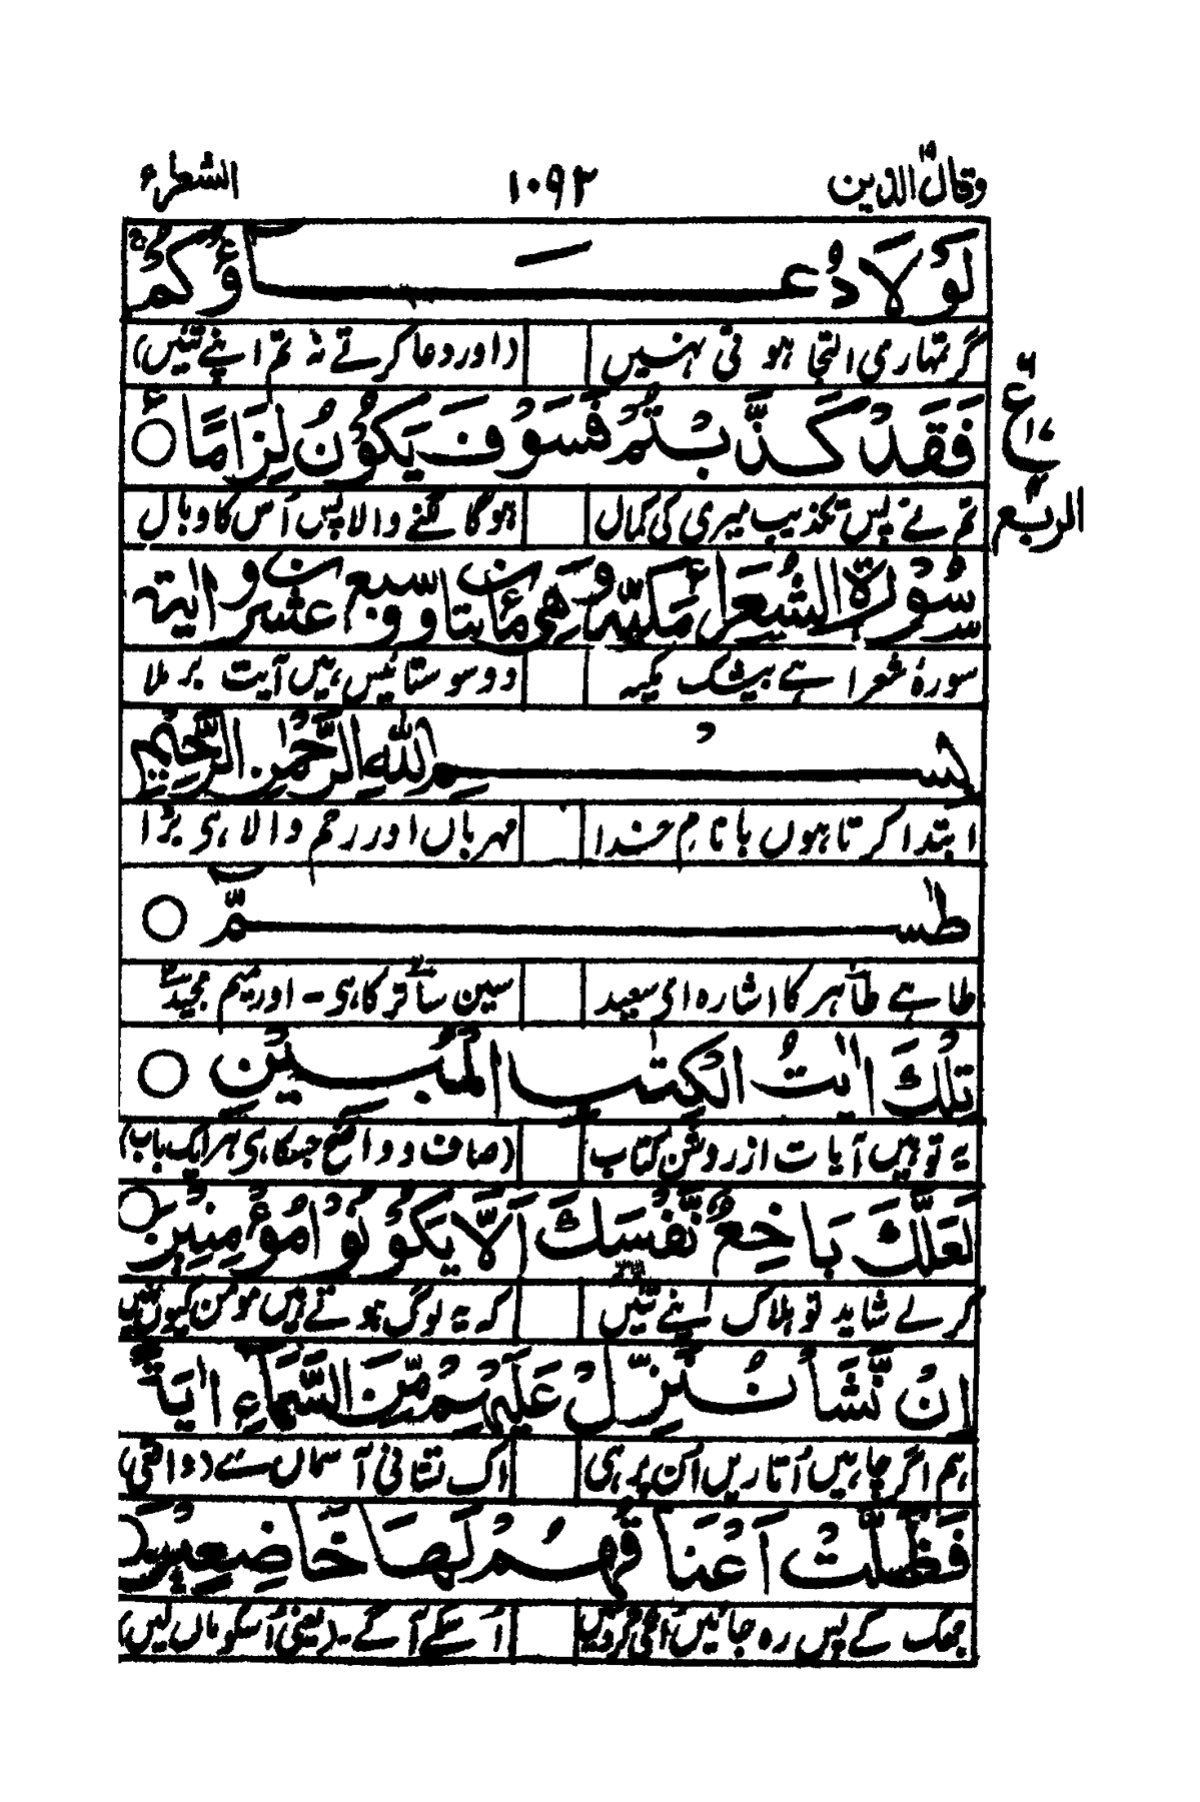 وقال الذین ۱۹ ۱۰۹۲ الشعراء
لَوْلَا دُعَآؤُكُمْ ۚ
گر تمہاری التجا ہوتی نہیں (اور دعا کرتے نہ تم اپنے تئیں)
فَقَدْ كَذَّبْتُمْ فَسَوْفَ يَكُوْنُ لِزَامًا ○
ع
الربع
تم نے پس تکذیب میری کی کمال ہوگا لگنے والا پس اُس کا وبال
سُوْرَةُ الشُّعَرَاءِ مَكِّيَّةٌ وَّهِيَ مِائَتَانِ وَسَبْعٌ وَّعِشْرُوْنَ اٰيَةً
سورۂ شعرا ہے بیشک مکیہ دو سو ستائیس ہیں آیت بر ملا
بِسْمِ اللّٰهِ الرَّحْمٰنِ الرَّحِيْمِ
ابتدا کرتا ہوں با نامِ خدا مہرباں اور رحم والا ہی بڑا
طٰسٓمّٓ ○
طا ہے طاہر کا اشارہ ای سعید سین ساتر کا ہی ۔ اور میم مجید
تِلْكَ اٰيٰتُ الْكِتٰبِ الْمُبِيْنِ ○
یہ تو ہیں آیات از روشن کتاب (صاف و واضح جسکا ہی ہر اک باب)
لَعَلَّكَ بَاخِعٌ نَّفْسَكَ اَلَّا يَكُوْنُوْا مُؤْمِنِيْنَ ○
کرلے شاید تو ہلاک اپنے تئیں کہ یہ لوگ ہوتے ہیں مومن کیوں نہیں
اِنْ نَّشَاْ نُنَزِّلْ عَلَيْهِمْ مِّنَ السَّمَآءِ اٰيَةً
ہم اگر چاہیں اُتاریں اُن پر ہی اک نشانی آسماں سے (واقعی)
فَظَلَّتْ اَعْنَاقُهُمْ لَهَا خَاضِعِيْنَ ○
جھک کے پس رہ جائیں اُنکی گردنیں اُسکے آگے ۔ (یعنی اُسکو مان لیں)